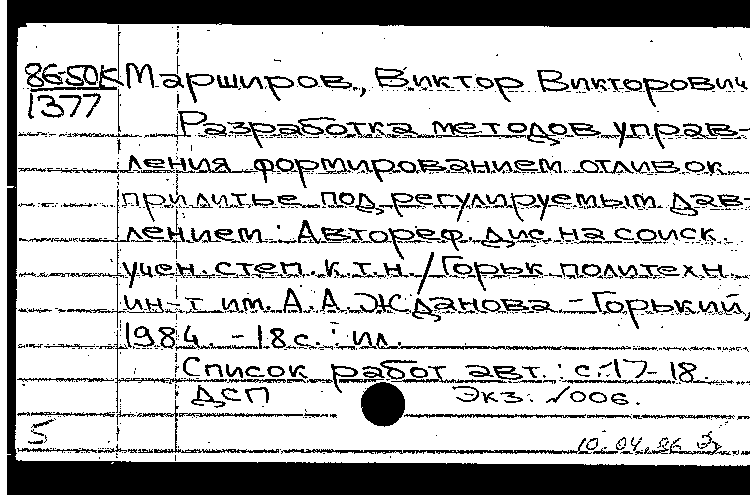 86-50К Марширов, Виктор Викторович
1377
Разработка методов управ-
ления формированием отливок
при литье под регулируемым дав-
лением : Автореф. дис. на соиск.
учен. степ. к.т.н. / Горьк политехн.
ин-т им. А.А. Жданова - Горький,
1984. - 18 с. : ил.
Список работ авт.: с. 17-18.
ДСП Экз. №006.
5 10.04.86